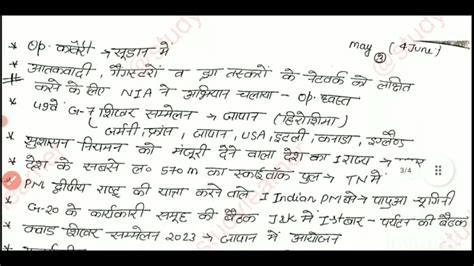 May (4 June)
③
* Op. कावेरी → सूडान में
* आतकवादी, गैंगस्टरो व ड्रग तस्करो के नेटवर्क को लक्षित
करने के लिए NIA ने अभियान चलाया - Op. ध्वस्त
* 49वे G-7 शिखर सम्मेलन → जापान (हिरोशिमा)
(जर्मनी, फ्रांस, जापान, USA, इटली, कनाडा, इंग्लैण्ड
* सुशासन नियमन को मंजूरी देने वाला देश का I राज्य →
* देश के सबसे ल० 570m का स्काई वॉक पुल → TN में
* PM द्वीपीय राष्ट्र की यात्रा करने वाले I Indian PM बने → पापुआ न्यूगिनी
* G-20 के कार्यकारी समूह की बैठक J&K में I स्तर - पर्यटन की बैठक
* क्वाड शिखर सम्मेलन 2023 → जापान में आयोजन
3/4
@study